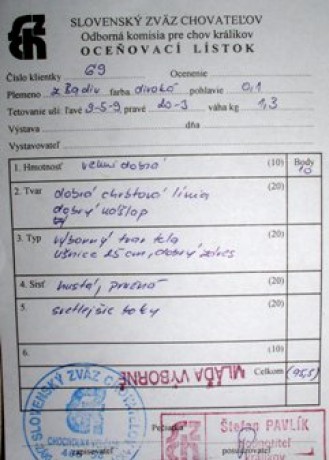 SLOVENSKÝ ZVÄZ CHOVATEĽOV
Odborná komisia pre chov králikov
OCEŇOVACÍ LÍSTOK
Číslo klietky 69 Ocenenie
Plemeno farba divoká pohlavie 0,1
Tetovanie uší: ľavé 9-5-9 pravé 20-3 váha kg 1,3
Výstava dňa
Vystavovateľ
1. Hmotnosť veľmi dobrá (10) Body 10
2. Tvar dobrá chrbtová línia (20)
dobrý nášlap
3. Typ výborný tvar tela (20)
ušnice
4. Srsť hustá, pružná (20)
5. svetlejšie boky (20)
6. (10)
MLÁĎA VÝBORNÉ Celkom
SLOVENSKÝ ZVÄZ CHOVATEĽOV
Pečiatka
Štefan PAVLÍK
zapisovateľ posudzovateľ